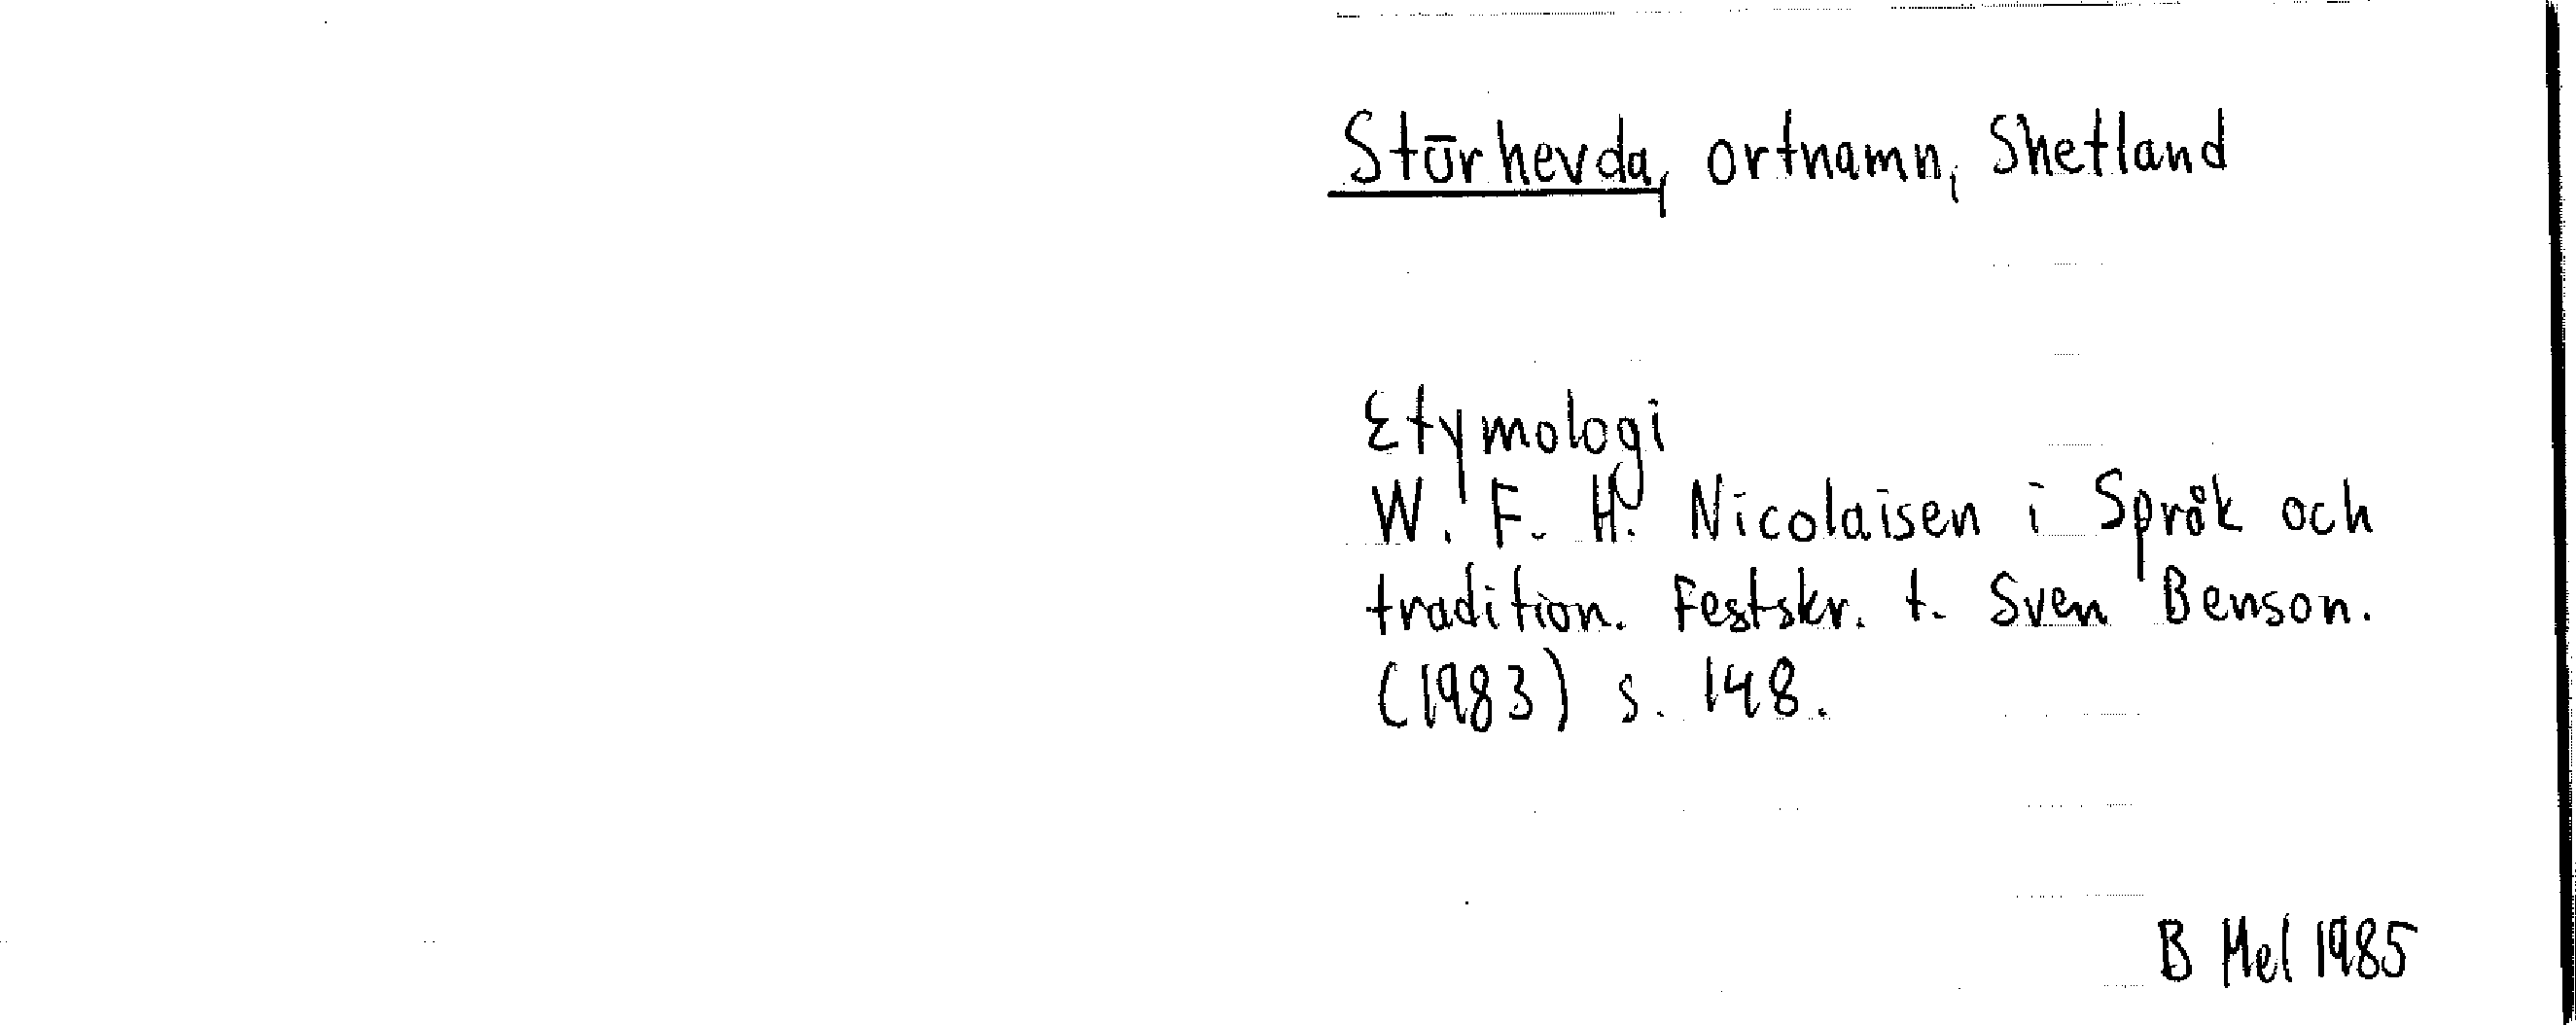 Stūrhevda, ortnamn, Shetland
Etymologi
W. F. H. Nicolaisen i Språk och
tradition. Festskr. t. Sven Benson.
(1983) s. 148.
B Mel 1985